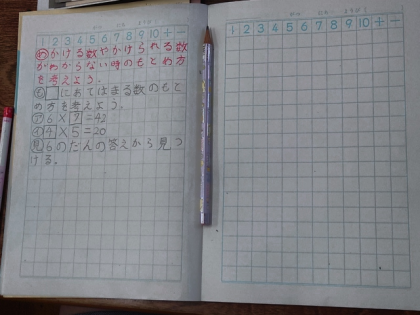 1 2 3 4 5 6 7 8 9 10 + −
1 2 3 4 5 6 7 8 9 10 + −
めかける数やかけられる数
がわからない時のもとめ方
を考えよう。
も□にあてはまる数のもと
め方を考えよう。
ア6×7=42
イ4×5=20
見6のだんの答えから見つ
ける。